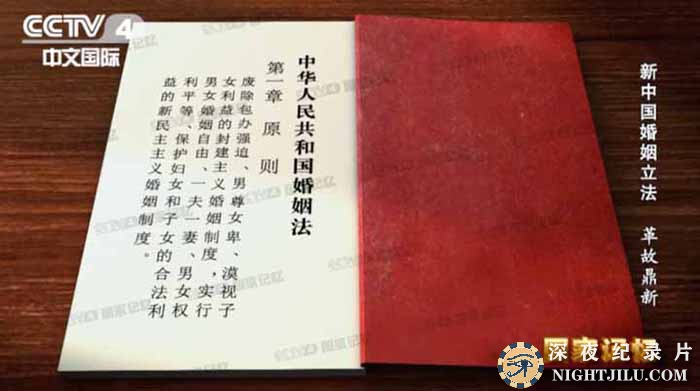 CCTV 4
中文国际
中华人民共和国婚姻法
第一章 原则
废除包办强迫、男尊女卑、漠视子
女利益的封建主义婚姻制度,实行
男女婚姻自由、一夫一妻、男女权
利平等、保护妇女和子女的合法利
益的新民主主义婚姻制度。
新中国婚姻立法 革故鼎新
国家记忆
深夜纪录片
NIGHTJILU.COM